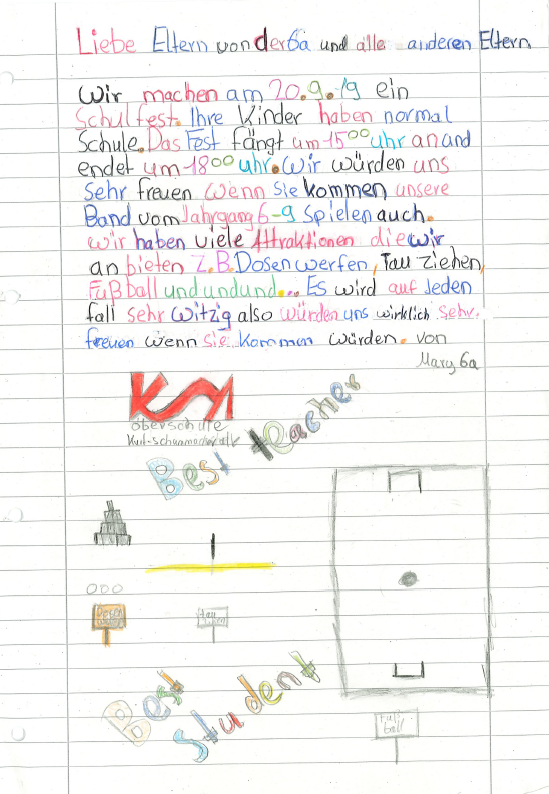 Liebe Eltern von der 6a und alle anderen Eltern,
Wir machen am 20.9.19 ein
Schulfest. Ihre Kinder haben normal
Schule. Das Fest fängt um 15⁰⁰ uhr an and
endet um 18⁰⁰ uhr. Wir würden uns
sehr freuen wenn sie kommen unsere
Band vom Jahrgang 6-9 spielen auch.
wir haben viele Attraktionen die wir
an bieten z.B. Dosen werfen, Tau ziehen,
Fußball und und und... Es wird auf Jeden
fall sehr witzig also würden uns wirklich sehr.
freuen wenn sie kommen würden. von
Marg 6a
KSA
oberschule
Best teacher
Dosen
tau
ziehen
Best
student
Fuß
ball